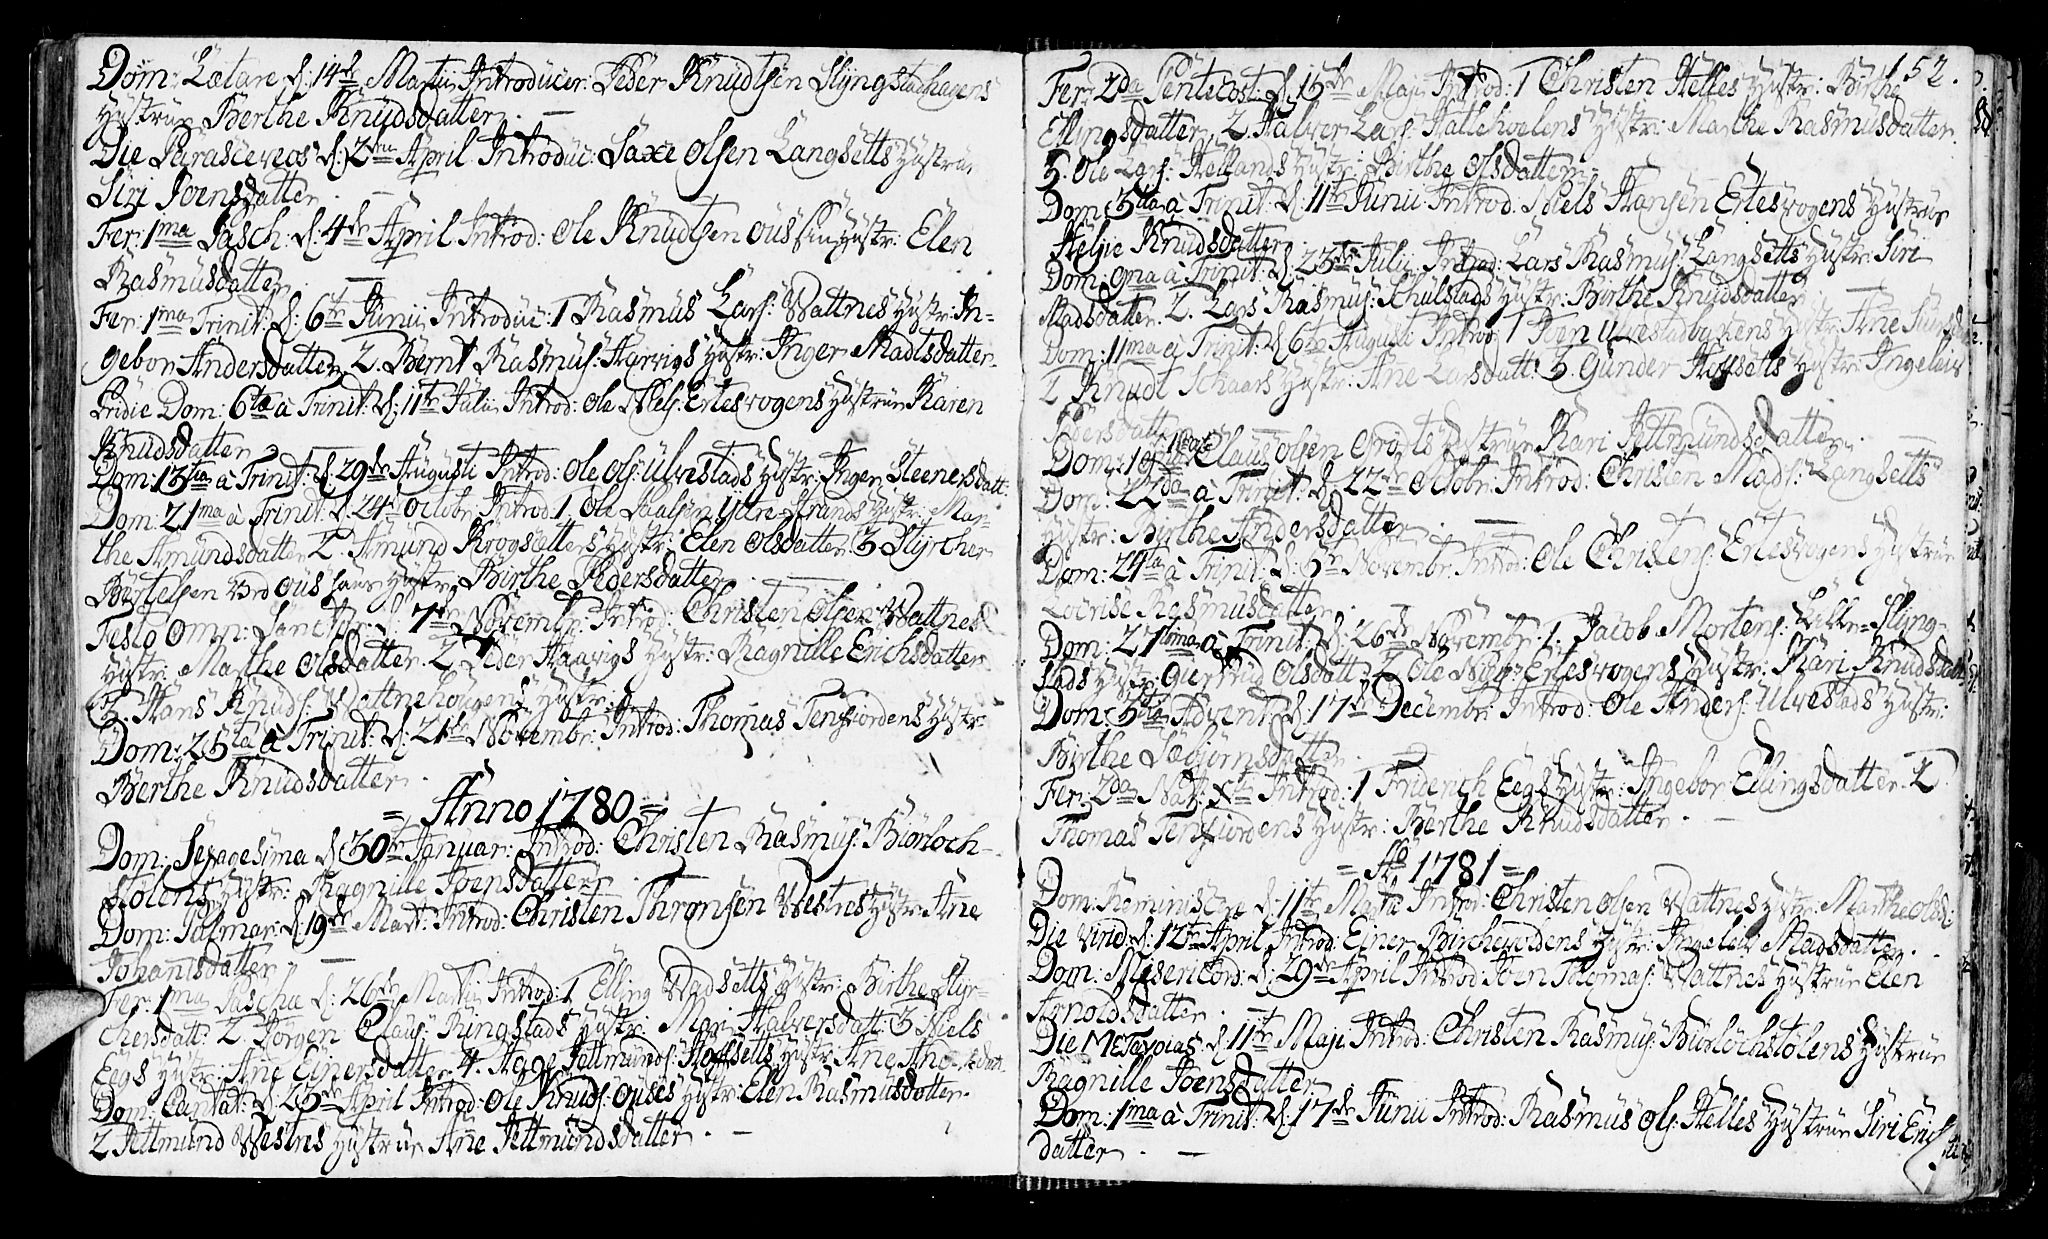 Dom: Lætare d: 14de Martii Introducer: Peder Knudtsen Slyngstadhagens
Hustrue Berthe Knudsdatter. —
Die Parasceveos d: 2den April Introduc: Saxe Olsen Langsetts Hustrue
Siri Joensdatter. —
Fer: 1ma Pasch: d: 4de April Introd: Ole Knudtsen Ous sin Hustr: Elen
Rasmusdatter. —
Fer: 1ma Trinit: d: 6te Junii Introduc: 1 Rasmus Lars: Vattnes Hustr: In-
gebor Andersdatter. 2. Bernt Rasmus: Harvigs Hustr: Inger Madtsdatter.
Pridie Dom: 6tæ à Trinit: d: 11te Julii Introd: Ole Nels: Ertesvogens Hustrue Karen
Knudsdatter
Dom: 13tia à Trinit: d: 29de Augusti Introd: Ole Ols: Ulvestads Hustr: Inger Steenersdatt:
Dom: 21ma à Trinit: d: 24de Octobr: Introd: 1. Ole Paalsen Ytre-Strands Hustr: Mar-
the Amundsdatter 2. Amund Krogsætters Hustr: Elen Olsdatter. 3 Styrcher
Bertelsen ved Ous hans Hustr: Birthe Pedersdatter. —
Festo Omn: Sanctor: d: 7de Novembr: Introd: Christen Olsen Vattnes
Hustr: Marthe Olsdatter. 2. Peder Haavigs Hustr: Ragnille Erichsdatter
3. Hans Knuds: Vattneholgens Hustr:
Dom: 25ta à Trinit: d: 21de Novembr: Introd: Thomas Tenfiordens Hustr:
Berthe Knudsdatter.
= Anno 1780 =
Dom: Sexagesima d: 30te Januar: Introd: Christen Rasmus: Biørloch-
stølens Hustr: Ragnille Joensdatter.
Dom: Palmar: d: 19de Mart: Introd: Christen Thronsen Vestres Hustr: Ane
Johansdatter. —
Fer: 1ma Pascha d: 26de Martii Introd: 1 Elling Vadsetts Hustr: Birthe Styr-
chersdatt: 2. Jørgen Claus: Ringstads Hustr: Mari Halversdatt: 3 Niels
Eegs Hustr: Ane Einersdatter. 4. Aage Jettmunds: Hoffsetts Hustr: Ane
Dom: Cantat: d: 23de April Introd: Ole Knuds: Ouses Hustr: Elen Rasmusdatter.
2 Jettmund Vestres Hustrue Ane Jettmundsdatter. —
152.
Fer: 2da Pentecost: d: 15de Maji Introd: 1 Christen Helles Hustr: Birthe
Ellingsdatter. 2. Halver Lars: Hattehoelens Hustr: Marthe Rasmusdatter.
3. Ole Lars: Hellands Hustr: Birthe Olsdatter.
Dom: 3tia à Trinit: d: 11te Junii Introd: Niels Hansen Ertesvogens Hustrue
Helje Knudsdatter.
Dom: 9na à Trinit: d: 23de Julii Introd: Lars Rasmus: Langsetts Hustr: Siri
Madsdatter. 2. Lars Rasmus: Schulstads Hustr: Birthe Knudsdatter. —
Dom: 11ma à Trinit: d: 6te Augusti Introd: 1 Joen Ulvestadbachens Hustr: Ane
2 Knudt Schaars Hustr: Ane Larsdatt: 3. Gunder Hoffsetts Hustr: Ingeleiv
Pedersdatter.
Dom: 19 Claus Olsen Grødts Hustrue Kari Jettmundsdatter. —
Dom: 22da à Trinit: d: 22de Octobr: Introd: Christen Mads: Langsetts
Hustr: Birthe Andersdatter. —
Dom: 24ta à Trinit: d: 5te Novembr: Introd: Ole Christens: Ertesvogens Hustrue
Lovrise Rasmusdatter.
Dom: 27ma à Trinit: d: 26de Novembr: 1. Jacob Mortens: Lille-Slyng-
stads Hustr: Giertrud Olsdatt: 2 Ole Ertesvogens Hustr: Kari Knudsdatter
Dom: 3tia Advent: d: 17de Decembr: Introd: Ole Anders: Ulvestads Hustr:
Birthe Sæbjørnsdatter.
Fer: 2da Nat: Xti Introd: 1 Friderich Eegs Hustr: Ingebor Ellingsdatter. 2
Thomas Tenfiordens Hustr: Berthe Knudsdatter. —
= Ao 1781 =
Dom: Reminiscere d: 11te Martii Introd: Christen Olsen Vattnes Hustr: Marthe Olsd:
Die Virid: d: 12te April Introd: Einer Birchevoldens Hustr: Ingeleiv Madsdatter.
Dom: Misericord: d: 29de April Introd: Joen Thomas: Vattnes Hustrue Elen
Arnoldsdatter. —
Die d: 11te Maji Introd: Christen Rasmus: Biørlochstølens Hustrue
Ragnille Joensdatter.
Dom: 1ma à Trinit: d: 17de Junii Introd: Rasmus Ols: Helles Hustrue Siri Erichs
datter. —